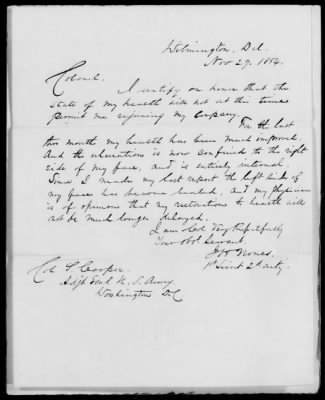 Wilmington, Del.
Nov 27. 1854.
Colonel.
I certify on honor that the
state of my health will not at this time
permit me rejoining my Company.
For the last
two months my health has been much improved,
And the ulceration is now confined to the right
side of my face, and is entirely internal.
Since I made my last report the left side of
my face has become healed, and my Physician
is of opinion that my restoration to health will
not be much longer delayed.
I am Col Very Respectfully
Your Obt. Servant.
Nones.
1st Lieut 2d Arty.
Col S. Cooper.
Adjt Genl U. S. Army
Washington D.C